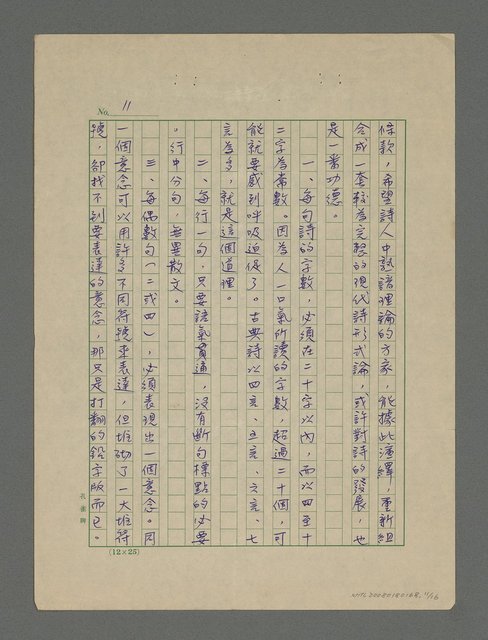 No. 11
條款，希望詩人中熟諳理論的方家，能據此演繹，重新組
合成一套較為完整的現代詩形式論，或許對詩的發展，也
是一番功德。
一、每句詩的字數，必須在二十字以內，而以四至十
二字為常數。因為人一口氣所讀的字數，超過二十個，可
能就要感到呼吸迫促了。古典詩以四言、五言、六言、七
言為多，就是這個道理。
二、每行一句，只要語氣貫通，沒有斷句標點的必要
。行中分句，無異散文。
三、每偶數句（二或四），必須表現出一個意念。同
一個意念可以用許多不同符號來表達，但堆砌了一大堆符
號，卻找不到要表達的意念，那只是打翻的鉛字版而已。
孔雀牌
(12×25)